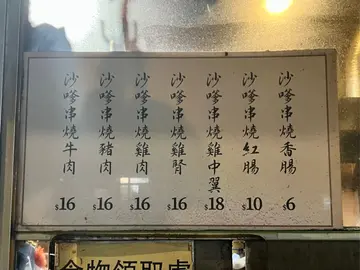 沙嗲串燒香腸 $6
沙嗲串燒紅腸 $10
沙嗲串燒雞中翼 $18
沙嗲串燒雞腎 $16
沙嗲串燒雞肉 $16
沙嗲串燒豬肉 $16
沙嗲串燒牛肉 $16
食物領取處